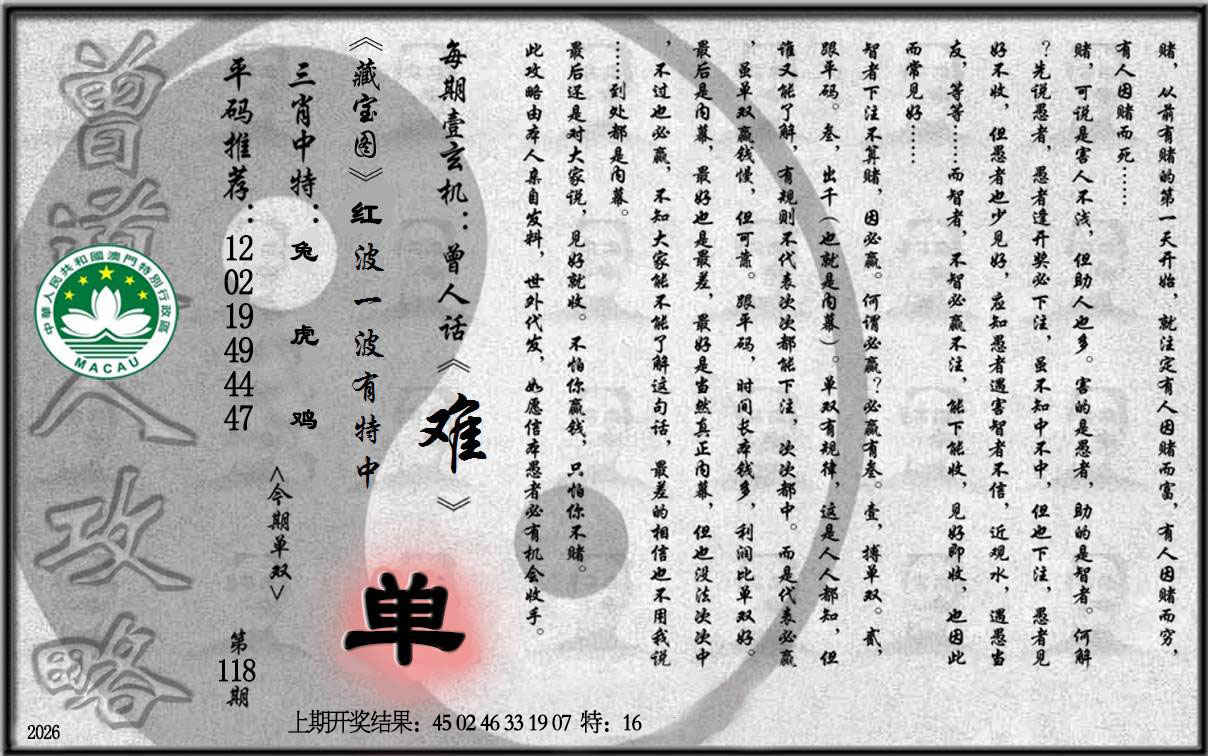 赌，从前有赌的第一天开始，就注定有人因赌而富，有人因赌而穷，
有人因赌而死……
赌，可说是害人不浅，但助人也多。害的是愚者，助的是智者。何解
？先说愚者，愚者逢开奖必下注，虽不知中不中，但也下注，愚者见
好不收，但愚者也少见好，应知愚者遇害智者不信，近观水，遇愚当
友，等等……而智者，不智必赢不注，能下能收，见好即收，也因此
而常见好……
智者下注不算赌，因必赢。何谓必赢？必赢有叁。壹，搏单双。贰，
跟平码。叁，出千（也就是内幕）。单双有规律，这是人人都知，但
谁又能了解，有规则不代表次次都能下注，次次都中。而是代表必赢
，虽单双赢钱慢，但可靠。跟平码，时间长本钱多，利润比单双好。
最后是内幕，最好也是最差，最好是当然真正内幕，但也没法次次中
，不过也必赢，不知大家能不能了解这句话，最差的相信也不用我说
……到处都是内幕。
最后还是对大家说，见好就收。不怕你赢钱，只怕你不赌。
此攻略由本人亲自发料，世外代发，如愿信本愚者必有机会收手。
每期壹玄机：曾人话《难》
《藏宝图》红波一波有特中
单
三肖中特：兔 虎 鸡
<今期单双>
平码推荐：12 02 19 49 44 47
第118期
曾道人攻略
中華人民共和國澳門特別行政區
MACAU
上期开奖结果：45 02 46 33 19 07 特：16
2026